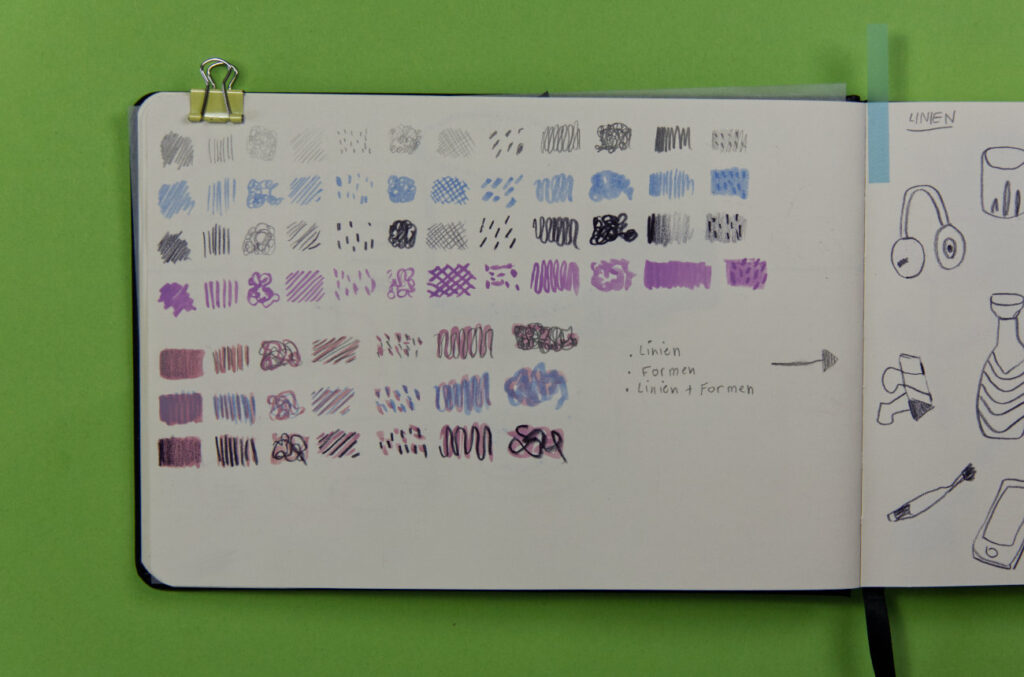 LINIEN
. Linien
. Formen
. Linien + Formen